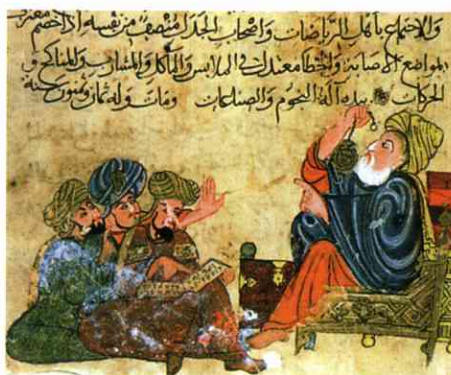 والاجتماع باهل الرياضات واصحاب الجدل منصف من نفسه اذا خصم معترف
بمواضع الاصابة والخطا معتدل في الملابس والمآكل والمشارب والمناكح و
الحركات بيده آلة النجوم والصناعات ومات وله ثمان وستون سنة